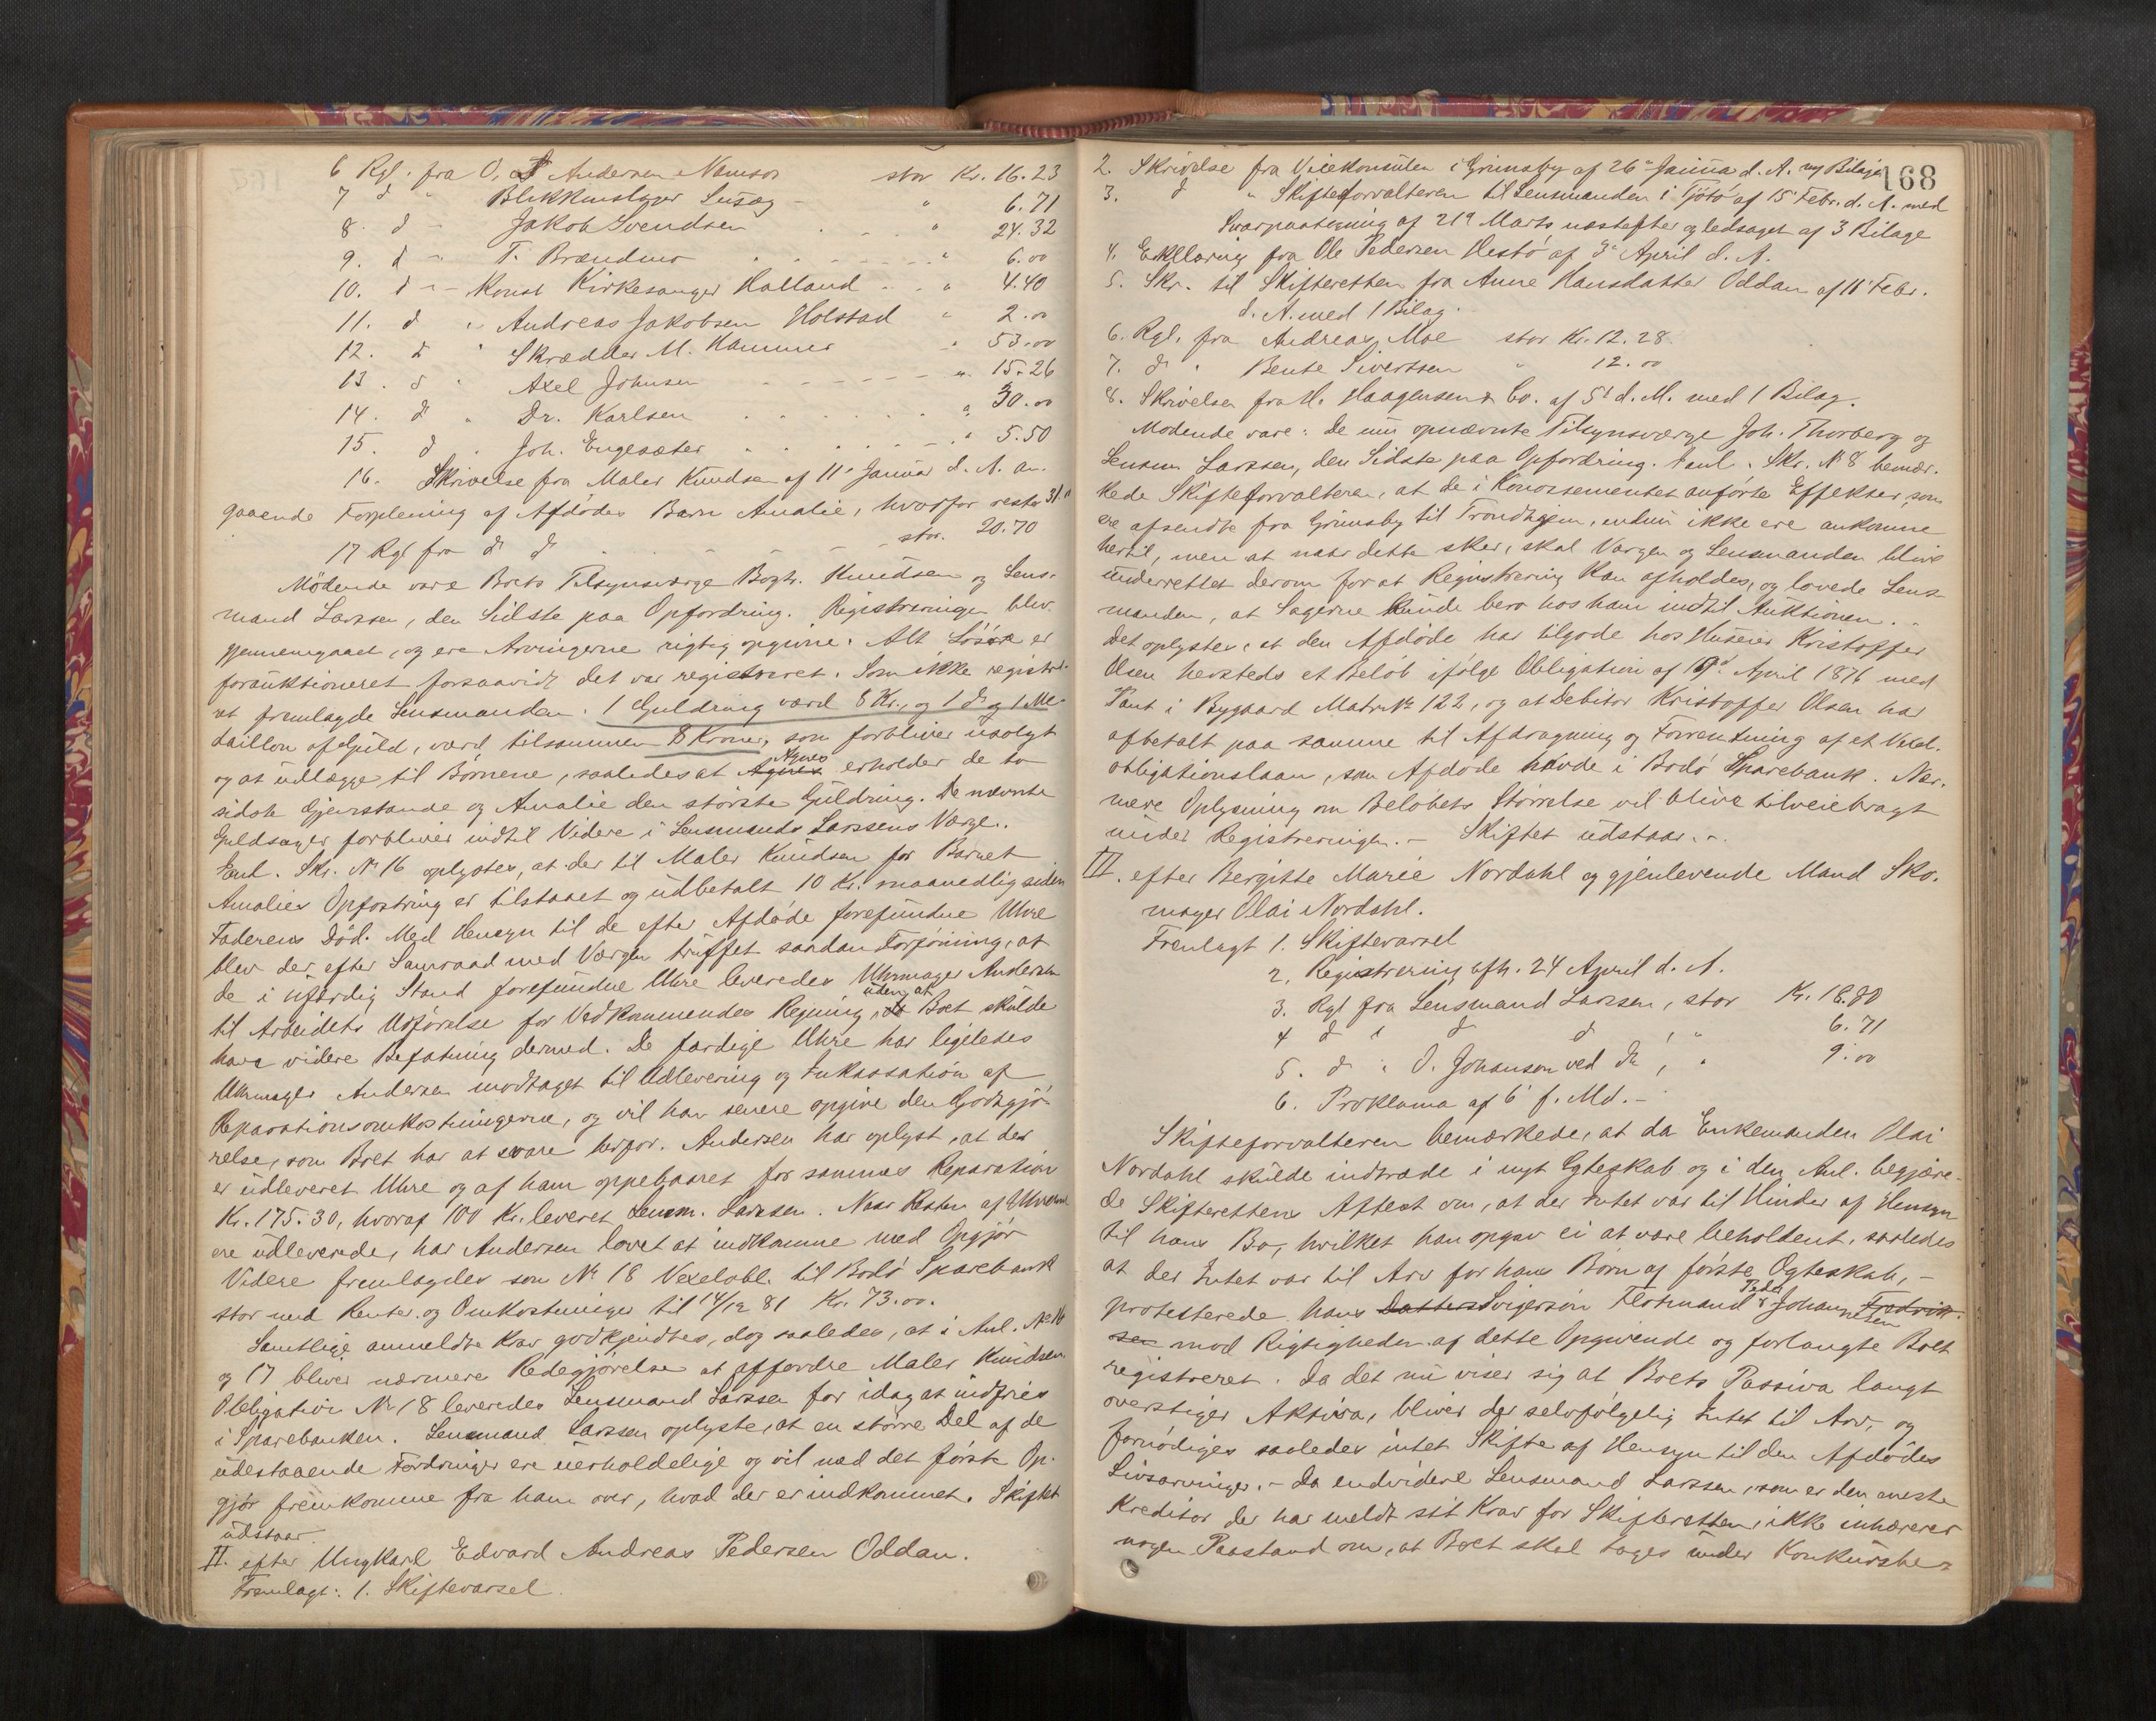 6 Rgl. fra O. A. Andersen Namsos stor Kr. 16.23
7 d " Blikkenslager " 6.71
8. d " Jakob Svendsen " 24.32
9. d " T. Brændmo " 6.00
10. d " Konst Kirkesanger Halland " 4.40
11. d " Andreas Jakobsen Holstad " 2.00
12. d " Skrædder M. Hammer " 53.00
13. d " Axel Johnsen " 15.26
14. d " Dr. Karlsen " 30.00
15. d " Joh. Engesæter " 5.50
16. Skrivelse fra Maler Knudsen af 11' Januar d. A. an-
gaaende Forpleining af Afdødes Barn Amalie, hvorfor rester
17 Rgl fra d d stor. 20.70
Mødende vare Boets Tilsynsværge Bogh. Knudsen og Lens-
mand Larssen, den Sidste paa Opfordring. Registreringen blev
gjennemgaaet, og ere Arvingerne rigtig opgivne. Alt Løsøre er
forauktioneret forsaavidt det var registreret. Som ikke registre-
ret fremlagde Lensmanden: 1 Guldring værd 8 Kr., og 1 d og 1 Me-
daillon af Guld, værd tilsammen 8 Kroner, som forbliver usolgt
og at udlægge til Børnene, saaledes at Agnes erholder de to
sidste Gjenstande og Amalie den største Guldring. De nævnte
Guldsager forbliver indtil Videre i Lensmands Larssens Værge.
Anl. Skr. No 16 oplystes, at der til Maler Knudsen for Barnet
Amalies Opfostring er tilstaaet og udbetalt 10 Kr. maanedlig siden
Faderens Død. Med Hensyn til de efter Afdøde forefundne Uhre
blev der efter Samraad med Værgen truffet saadan Forføining, at
de i ufærdig Stand forefundne Uhre leveredes Uhrmager Andersen
til Arbeidets Udførelse for Vedkommendes Regning, uden at Boet skulde
have videre Befatning dermed. De færdige Uhre har ligeledes
Uhrmager Andersen modtaget til Udlevering og Inkassation af
Reparationsomkostningerne, og vil han senere opgive den Godtgjø-
relse, som Boet har at svare herfor. Andersen har oplyst, at der
er udleveret Uhre og af ham oppebaaret for sammes Reparation
Kr. 175.30, hvoraf 100 Kr. leveret Lensm. Larssen. Naar Resten af Uhrene
ere udleverede, har Andersen lovet at indkomme med Opgjør
Videre fremlagdes som No 18 Vexelobl. til Bodø Sparebank
stor med Renter og Omkostninger til 14/12 81 Kr. 73.00.
Samtlige anmeldte Krav godkjendtes, dog saaledes, at i Anl. No 16
og 17 bliver nærmere Redegjørelse at affordre Maler Knudsen
Obligation No 18 leveredes Lensmand Larssen for idag at indfries
i Sparebanken. Lensmand Larssen oplyste, at en større Del af de
udestaaende Fordringer ere uerholdelige og vil med det første Op-
gjør fremkomme fra ham over, hvad der er indkommet. Skiftet
udstaar.
II. efter Ungkarl Edvard Andreas Pedersen Oddan.
Fremlagt: 1. Skiftevarsel
168
2. Skrivelse fra Vicekonsulen i Grimsby af 26' Januar d. A. og Bilage
3. d " Skifteforvalteren til Lensmanden i Tjøtø af 15' Febr. d. A. med
Svarpaategning af 21' Marts næstefter og ledsaget af 3 Bilage
4. Erklæring fra Ole Pedersen Hestø af 3' April d. A.
5. Skr. til Skifteretten fra Anne Hansdatter Oddan af 11' Febr.
d. A. med 1 Bilag.
6. Rgl. fra Andreas Moe stor Kr. 12.28
7. d " Bente Sivertsen " 12.00
8. Skrivelse fra H. Haagensen & Co. af 5' d. M. med 1 Bilag.
Mødende vare: De nu opnævnte Tilsynsværge Joh. Thorberg og
Lensm Larssen, den Sidste paa Opfordring. Anl. Skr. No 8 bemær-
kede Skifteforvalteren, at de i Konossementet anførte Effekter, som
ere afsendte fra Grimsby til Trondhjem, endnu ikke ere ankomne
hertil, men at naar dette sker, skal Værgen og Lensmanden blive
underrettet derom for at Registrering kan afholdes, og lovede Lens-
manden, at Sagerne kunde bero hos ham indtil Auktionen.
Det oplystes, at den Afdøde har tilgode hos Huseier Kristoffer
Olsen hersteds et Beløb ifølge Obligation af 19' April 1876 med
Pant i Bygaard Matr. No 122, og at Debitor Kristoffer Olsen har
afbetalt paa samme til Afdragning og Forrentning af et Vexel-
obligationslaan, som Afdøde havde i Bodø Sparebank. Nær-
mere Oplysning om Beløbets Størrelse vil blive tilveiebragt
under Registreringen. – Skiftet udstaar.
III. efter Bergitte Marie Nordahl og gjenlevende Mand Sko-
mager Olai Nordahl.
Fremlagt 1. Skiftevarsel
2. Registrering afh. 24 April d. A.
3. Rgl fra Lensmand Larssen, stor Kr. 18.80
4 d " d d , " 6.71
5. d " O. Johansen ved d , " 9.00
6. Proklama af 6' f. Md. –
Skifteforvalteren bemærkede, at da Enkemanden Olai
Nordahl skulde indtræde i nyt Ægteskab og i den Anl. begjære-
de Skifterettens Attest om, at der Intet var til Hinder af Hensyn
til hans Bo, hvilket han opgav ei at være beholdent, saaledes
at der Intet var til Arv for hans Børn af første Ægteskab, –
protesterede hans Datters Svigersøn Flotmand Peder Johan Fredrik-
sen mod Rigtigheden af dette Opgivende og forlangte Boet
registreret. Da det nu viser sig at Boets Passiva langt
overstiger Aktiva, bliver der selvfølgelig Intet til Arv, og
fornødiges saaledes intet Skifte af Hensyn til den Afdødes
Livsarvinger. – Da endvidere Lensmand Larssen, som er den eneste
Kreditor der har meldt sit Krav for Skifteretten, ikke inhærerer
nogen Paastand om, at Boet skal tages under Konkursbe-